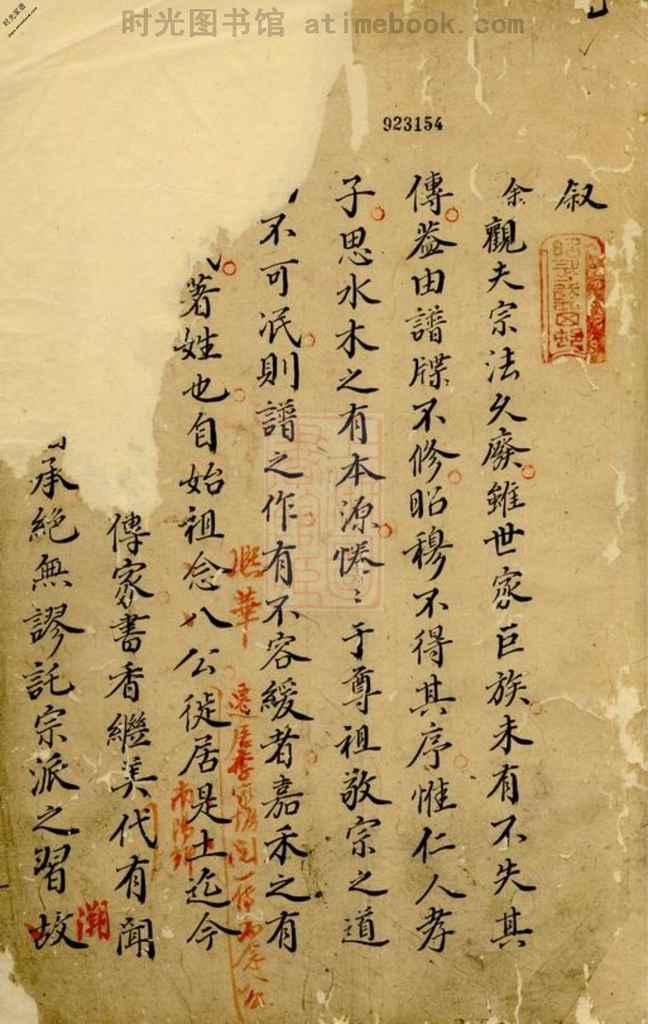 时光图书馆 atimebook.com
923154
叙
余觀夫宗法久廢雖世家巨族未有不失其
傳葢由譜牒不修昭穆不得其序惟仁人孝
子思水木之有本源惓〻于尊祖敬宗之道
不可泯則譜之作有不容緩者嘉禾之有
著姓也自始祖念八公徙居是土迄今
傳家書香繼美代有聞
承絶無謬託宗派之習故
溯